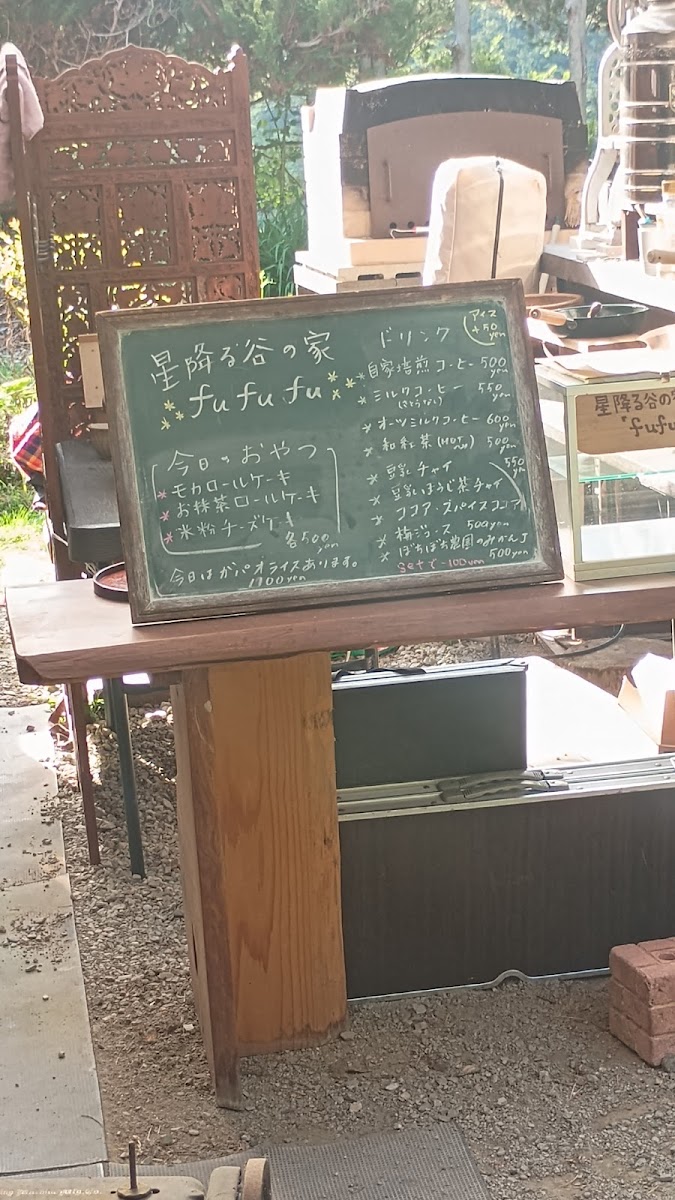 星降る谷の家
fu fu fu
今日のおやつ
モカロールケーキ
お抹茶ロールケーキ
米粉チーズケーキ
各500yen
今日はガパオライスあります。
1700yen
ドリンク
アイス
+50
yen
自家焙煎コーヒー 500yen
ミルクコーヒー 550yen
オーツミルクコーヒー 600yen
和紅茶(HOT) 500yen
豆乳チャイ
550yen
豆乳ほうじ茶チャイ
ココア・スパイスココア
梅ジュース 500yen
ぽちぽち農園のみかんJ
500yen
setで-100yen
星降る谷の
fufu